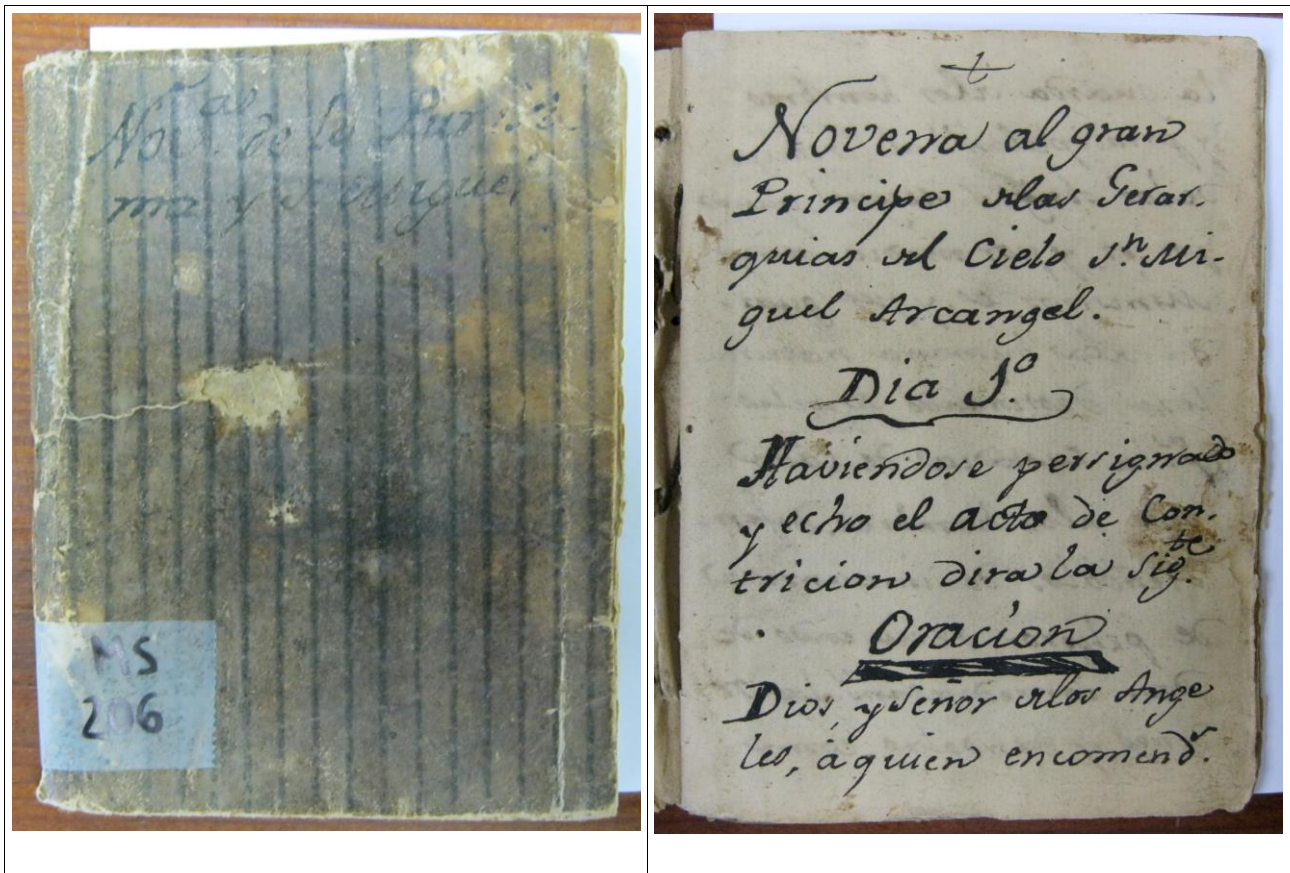 Nov.as de la Purisi-
ma y S. Migue,
MS
206
Novena al gran
Principe delas Gerar.
quias del Cielo S.n Mi-
guel Arcangel.
Dia 1.o
Haviendose persignado
y echo el acto de Con.
tricion dira la sig.te
Oracion
Dios, y Señor delos Ange
les, à quien encomend.s